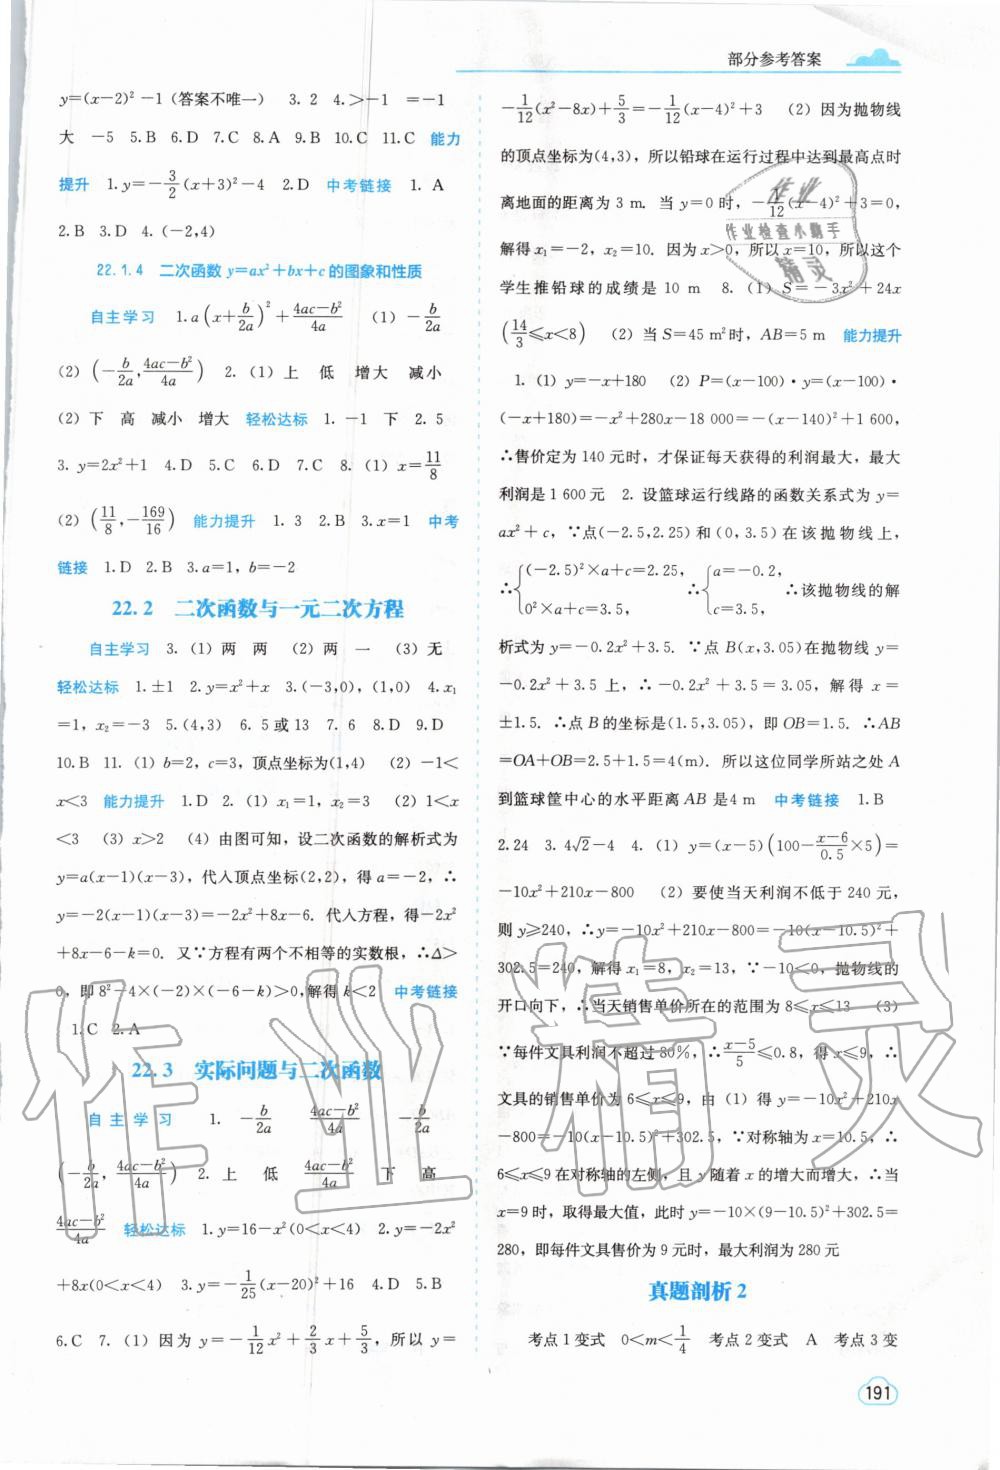 部分参考答案
y=(x-2)²-1(答案不唯一) 3.2 4.>-1 =-1
大 -5 5.B 6.D 7.C 8.A 9.B 10.C 11.C 能力
提升 1.y=-3/2(x+3)²-4 2.D 中考链接 1.A
2.B 3.D 4.(-2,4)
22.1.4 二次函数y=ax²+bx+c的图象和性质
自主学习 1.a(x+b/2a)²+(4ac-b²)/4a (1)-b/2a
(2)(-b/2a,(4ac-b²)/4a) 2.(1)上 低 增大 减小
(2)下 高 减小 增大 轻松达标 1.-1 下 2.5
3.y=2x²+1 4.D 5.C 6.D 7.C 8.(1)x=11/8
(2)(11/8,-169/16) 能力提升 1.3 2.B 3.x=1 中考
链接 1.D 2.B 3.a=1,b=-2
22.2 二次函数与一元二次方程
自主学习 3.(1)两 两 (2)两 一 (3)无
轻松达标 1.±1 2.y=x²+x 3.(-3,0),(1,0) 4.x₁
=1,x₂=-3 5.(4,3) 6.5或13 7.6 8.D 9.D
10.B 11.(1)b=2,c=3,顶点坐标为(1,4) (2)-1<
x<3 能力提升 1.D 2.(1)x₁=1,x₂=3 (2)1<x
<3 (3)x>2 (4)由图可知,设二次函数的解析式为
y=a(x-1)(x-3),代入顶点坐标(2,2),得a=-2,∴
y=-2(x-1)(x-3)=-2x²+8x-6. 代入方程,得-2x²
+8x-6-k=0. 又∵方程有两个不相等的实数根,∴Δ>
0,即8²-4×(-2)×(-6-k)>0,解得k<2 中考链接
1.C 2.A
22.3 实际问题与二次函数
自主学习 1. -b/2a (4ac-b²)/4a -b/2a
(-b/2a,(4ac-b²)/4a) 2.上 低 (4ac-b²)/4a 下 高
(4ac-b²)/4a 轻松达标 1.y=16-x²(0<x<4) 2.y=-2x²
+8x(0<x<4) 3.y=-1/25(x-20)²+16 4.D 5.B
6.C 7.(1)因为y=-1/12x²+2/3x+5/3,所以y=
-1/12(x²-8x)+5/3=-1/12(x-4)²+3 (2)因为抛物线
的顶点坐标为(4,3),所以铅球在运行过程中达到最高点时
离地面的距离为3 m. 当y=0时,-1/12(x-4)²+3=0,
解得x₁=-2,x₂=10. 因为x>0,所以x=10,所以这个
学生推铅球的成绩是10 m 8.(1)S=-3x²+24x
(14/3≤x<8) (2)当S=45 m²时,AB=5 m 能力提升
1.(1)y=-x+180 (2)P=(x-100)·y=(x-100)·
(-x+180)=-x²+280x-18 000=-(x-140)²+1 600,
∴售价定为140元时,才保证每天获得的利润最大,最大
利润是1 600元 2. 设篮球运行线路的函数关系式为y=
ax²+c,∵点(-2.5,2.25)和(0,3.5)在该抛物线上,
∴{(-2.5)²×a+c=2.25, 0²×a+c=3.5, ∴{a=-0.2, c=3.5, ∴该抛物线的解
析式为y=-0.2x²+3.5. ∵点B(x,3.05)在抛物线y=
-0.2x²+3.5上,∴-0.2x²+3.5=3.05,解得x=
±1.5. ∴点B的坐标是(1.5,3.05),即OB=1.5. ∴AB
=OA+OB=2.5+1.5=4(m). 所以这位同学所站之处A
到篮球筐中心的水平距离AB是4 m 中考链接 1.B
2.24 3.4√2-4 4.(1)y=(x-5)(100-(x-6)/0.5×5)=
-10x²+210x-800 (2)要使当天利润不低于240元,
则y≥240,∴y=-10x²+210x-800=-10(x-10.5)²+
302.5=240,解得x₁=8,x₂=13,∵-10<0,抛物线的
开口向下,∴当天销售单价所在的范围为8≤x≤13 (3)
∵每件文具利润不超过80%,∴(x-5)/5≤0.8,得x≤9,∴
文具的销售单价为6≤x≤9,由(1)得y=-10x²+210x
-800=-10(x-10.5)²+302.5,∵对称轴为x=10.5,∴
6≤x≤9在对称轴的左侧,且y随着x的增大而增大,∴当
x=9时,取得最大值,此时y=-10×(9-10.5)²+302.5=
280,即每件文具售价为9元时,最大利润为280元
真题剖析2
考点1变式 0<m<1/4 考点2变式 A 考点3变
191
作业
作业检查小助手
精灵
作业精灵